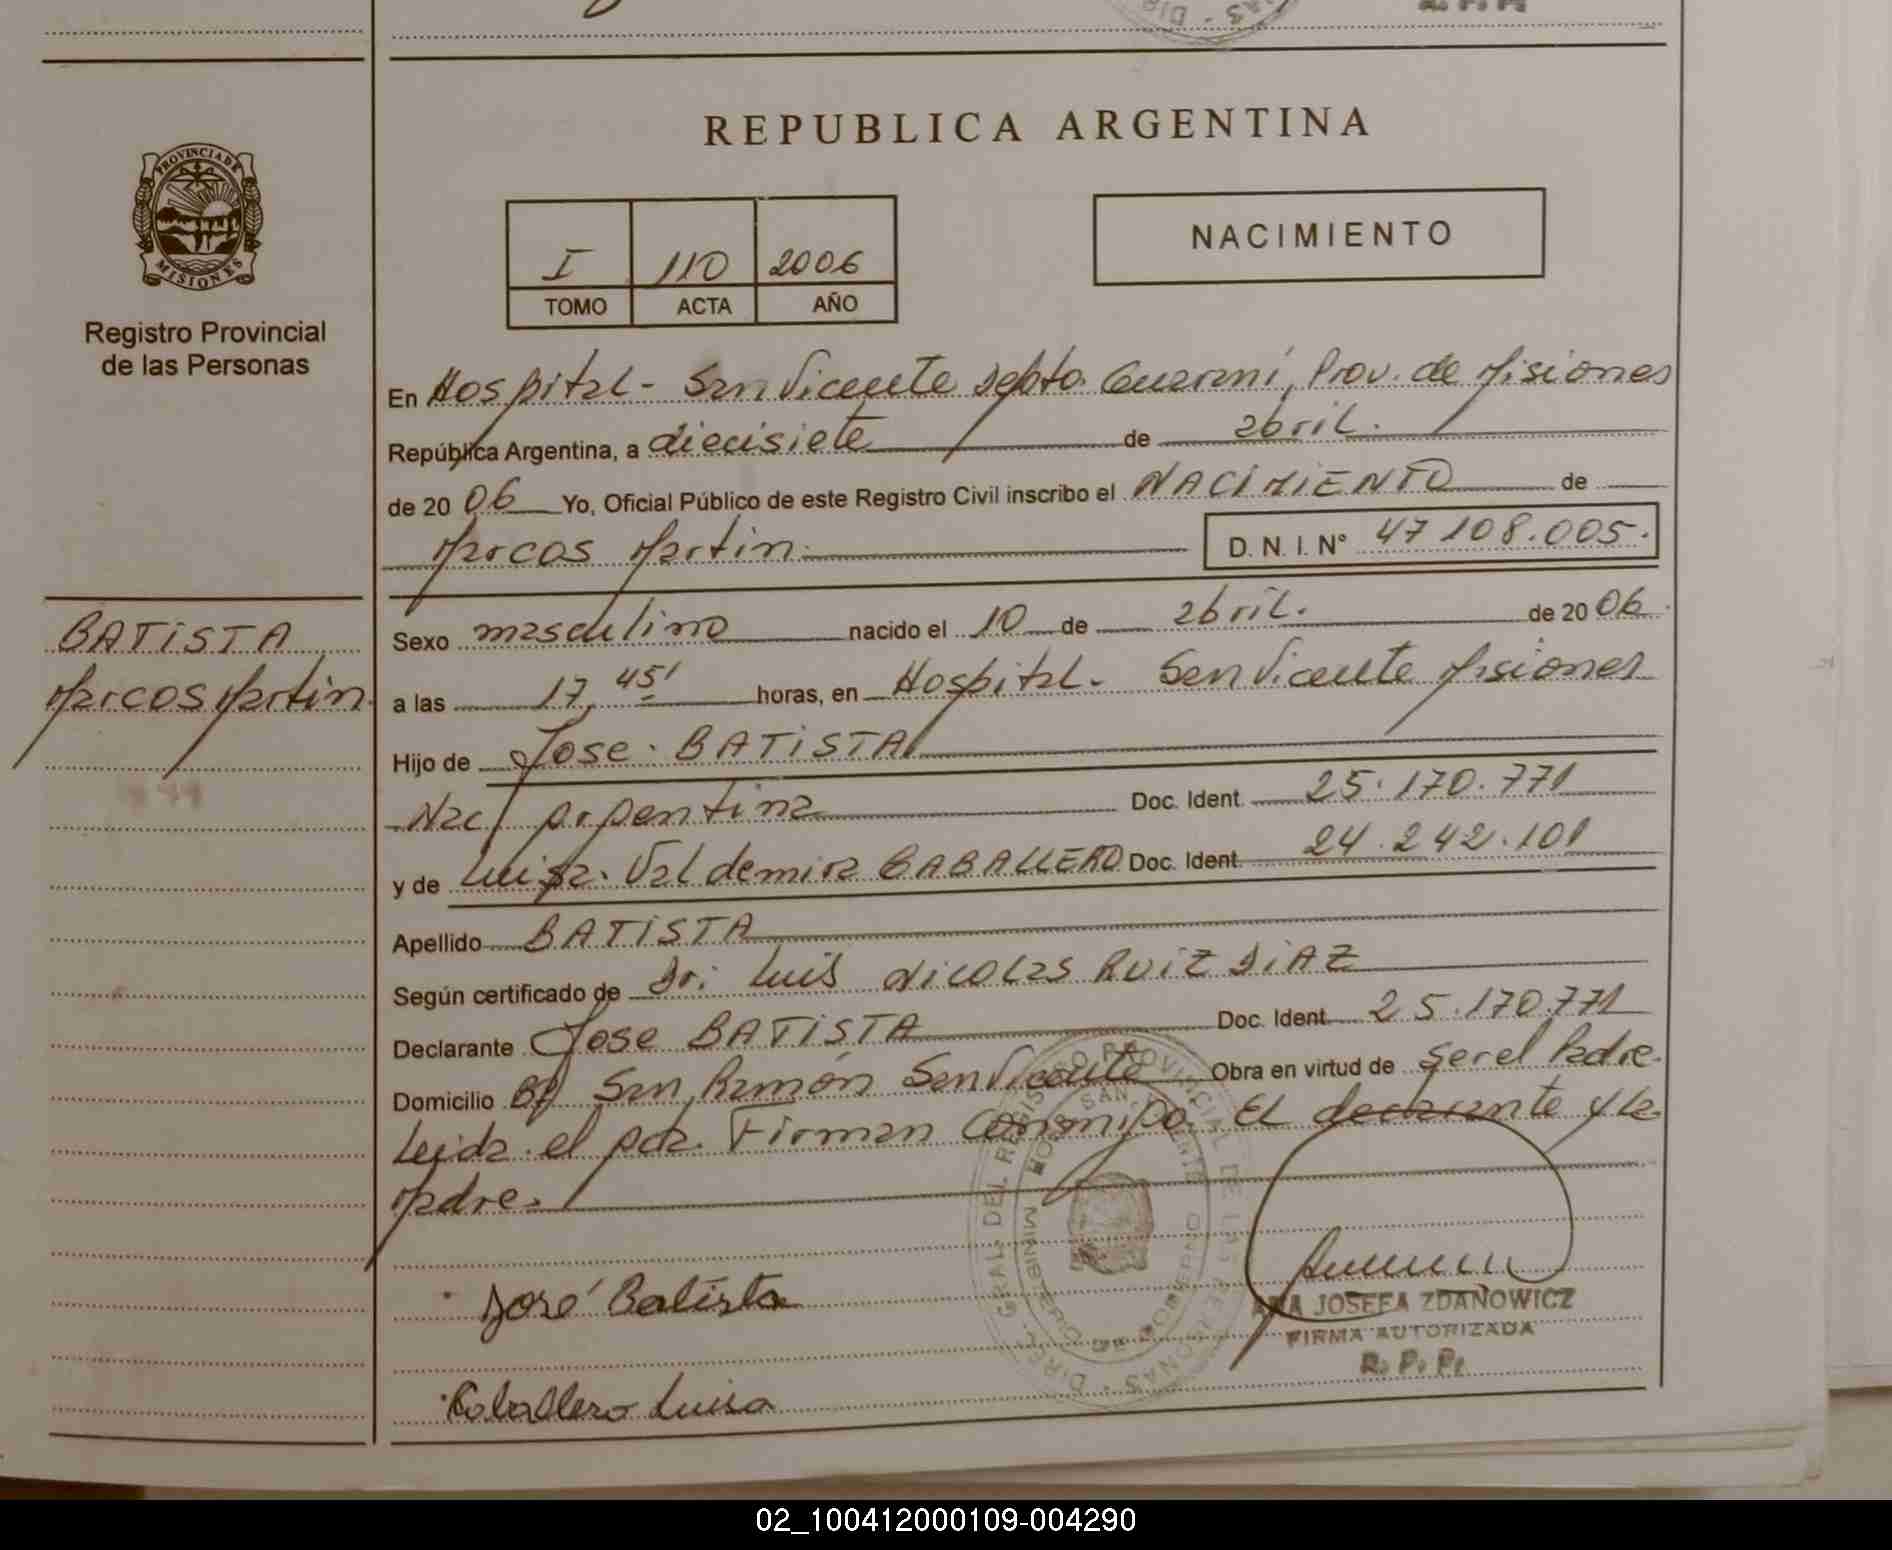 R. P. P.
REPUBLICA ARGENTINA
PROVINCIA DE
MISIONES
Registro Provincial
de las Personas
I 110 2006
TOMO ACTA AÑO
NACIMIENTO
En Hospital - San Vicente Depto. Guaraní, Prov. de Misiones
República Argentina, a diecisiete de abril.
de 20 06 Yo, Oficial Público de este Registro Civil inscribo el NACIMIENTO de
Marcos Martin. D. N. I. N° 47 108.005.
BATISTA
Marcos Martin.
Sexo masculino nacido el 10 de abril. de 20 06.
a las 17, 45' horas, en Hospital - San Vicente Misiones
Hijo de Jose. BATISTA
Nac/ Argentina Doc. Ident. 25.170.771
y de Luisa. Valdemira CABALLERO Doc. Ident. 24.242.101
Apellido BATISTA
Según certificado de Dr. Luis Nicolas RUIZ DIAZ
Declarante Jose BATISTA Doc. Ident. 25.170.771
Domicilio Bº San Ramón San Vicente Obra en virtud de ser el Padre.
Leida el acta. Firman Conmigo. El declarante y la
Madre.
DIREC. GRAL. DEL REGISTRO PROVINCIAL DE LAS PERSONAS
MINISTERIO DE GOBIERNO
José Batista
ANA JOSEFA ZDANOWICZ
FIRMA AUTORIZADA
R. P. P.
Caballero Luisa
02_100412000109-004290